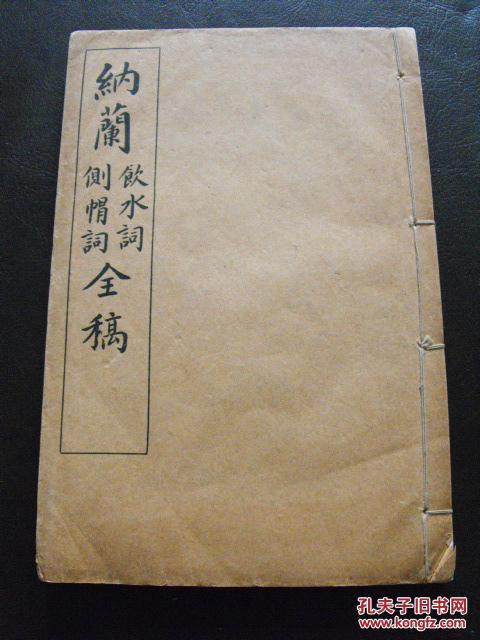 納蘭
飲水詞
側帽詞
全稿
孔夫子旧书网
www.kongfz.com